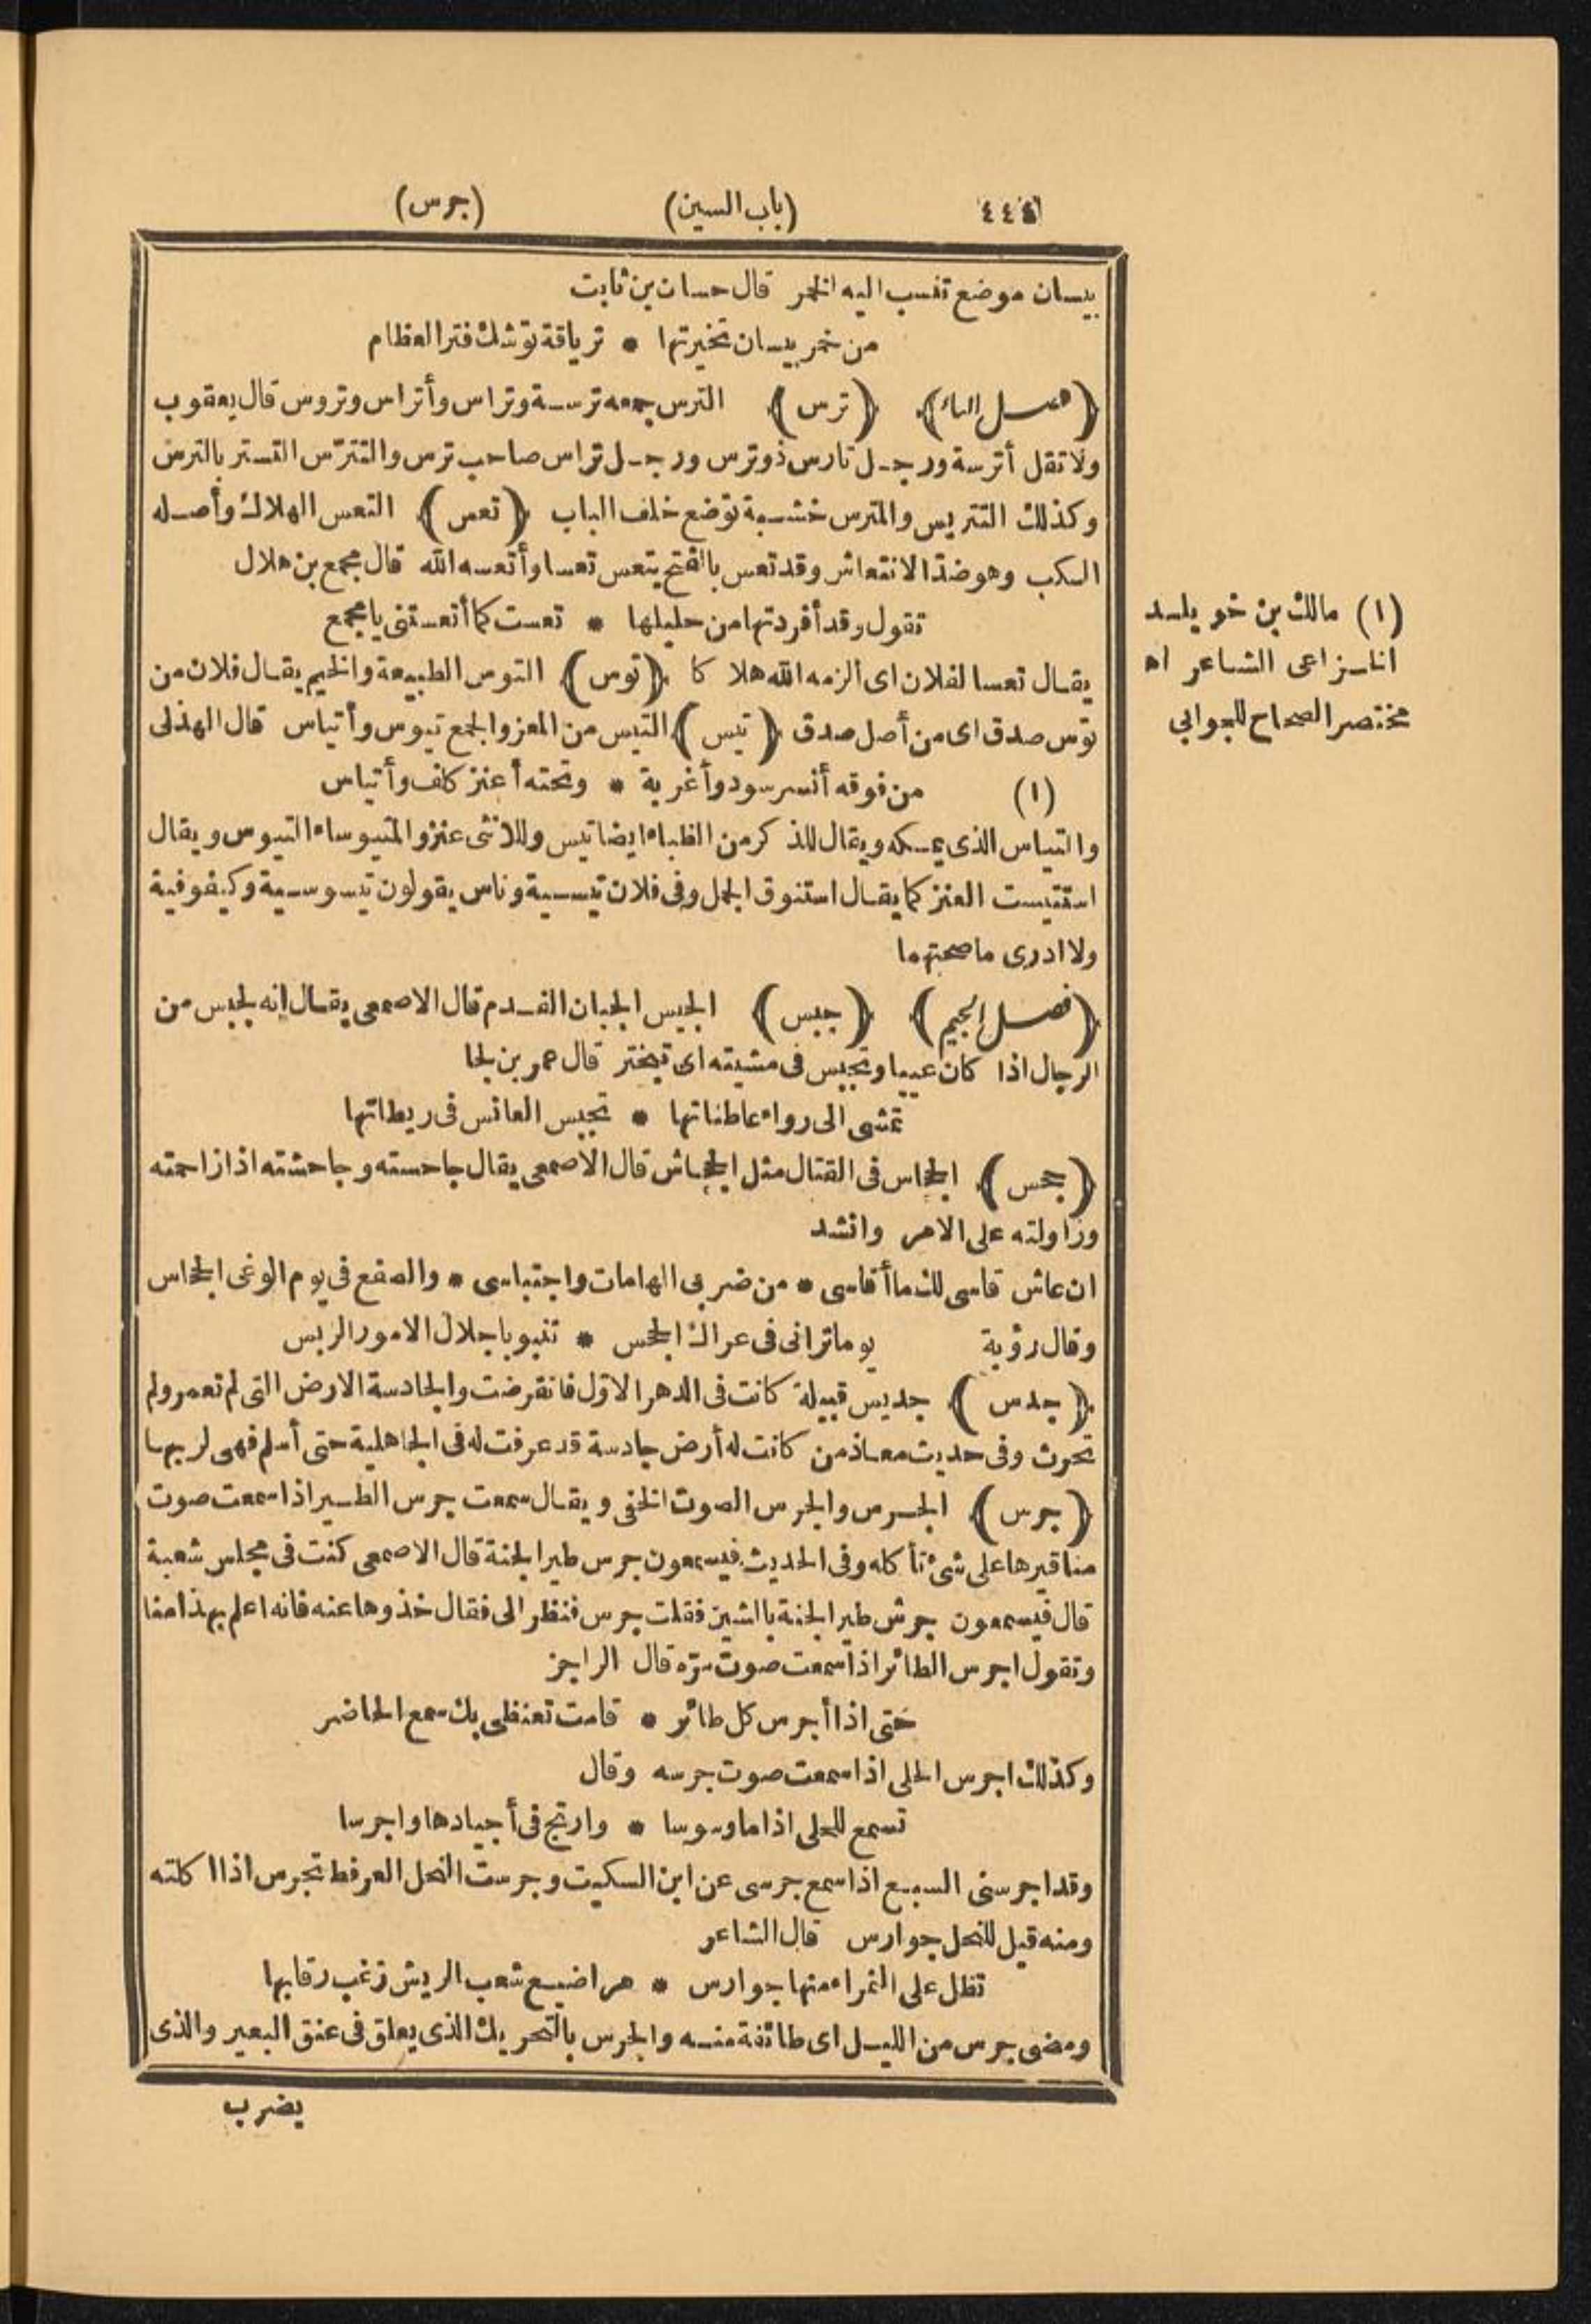 ٤٤٤ (باب السين) (جرس)
بيسان موضع تنسب اليه الخمر قال حسان بن ثابت
من خمر بيسان تخيرتها * ترياقة توشك فتر العظام
﴿فصل التاء﴾ ﴿ترس﴾ الترس جمعه ترسة وتراس وأتراس وتروس قال يعقوب
ولا تقل أترسة ورجل تارس ذو ترس ورجل تراس صاحب ترس والتترّس التستر بالترس
وكذلك التتريس والمترس خشبة توضع خلف الباب ﴿تعس﴾ التعس الهلاك وأصله
الكب وهو ضدّ الانتعاش وقد تعس بالفتح يتعس تعسا وأتعسه الله قال مجمع بن هلال
تقول وقد أفردتها من حليلها * تعست كما أتعستنى يا مجمع
يقال تعسا لفلان اى ألزمه الله هلاكا ﴿توس﴾ التوس الطبيعة والخيم يقال فلان من
توس صدق اى من أصل صدق ﴿تيس﴾ التيس من المعز والجمع تيوس وأتياس قال الهذلى
(١) من فوقه أنسر سود وأغربة * وتحته أعنز كلف وأتياس
والتياس الذى يمسكه ويقال للذكر من الظباء ايضا تيس وللانثى عنز والمتيوساء التيوس ويقال
استتيست العنز كما يقال استنوق الجمل وفى فلان تيسية وناس يقولون تيسوسية وكيفوفية
ولا ادرى ما صحتهما
﴿فصل الجيم﴾ ﴿جبس﴾ الجبس الجبان الفدم قال الاصمعى يقال انه لجبس من
الرجال اذا كان عييا وتجبس فى مشيته اى تبختر قال عمر بن لجا
تمشى الى رواء عاطناتها * تجبس العانس فى ريطاتها
﴿جحس﴾ الجحاس فى القتال مثل الجحاش قال الاصمعى يقال جاحسته وجاحشته اذا زاحمته
وزاولته على الامر وانشد
ان عاش قاسى لك ما أقاسى * من ضربى الهامات واجتباسى * والصقع فى يوم الوغى الجحاس
وقال رؤبة يوما ترانى فى عراك الجحس * تنبو باجلال الامور الربس
﴿جدس﴾ جديس قبيلة كانت فى الدهر الاوّل فانقرضت والجادسة الارض التى لم تعمر ولم
تحرث وفى حديث معاذ من كانت له أرض جادسة قد عرفت له فى الجاهلية حتى أسلم فهى لربها
﴿جرس﴾ الجرس والجرس الصوت الخفى ويقال سمعت جرس الطير اذا سمعت صوت
مناقيرها على شئ تأكله وفى الحديث فيسمعون جرس طير الجنة قال الاصمعى كنت فى مجلس شعبة
قال فيسمعون جرش طير الجنة بالشين فقلت جرس فنظر الى فقال خذوها عنه فانه اعلم بهذا منا
وتقول اجرس الطائر اذا سمعت صوت مرّه قال الراجز
حتى اذا أجرس كل طائر * قامت تعنظى بك سمع الحاضر
وكذلك اجرس الحلى اذا سمعت صوت جرسه وقال
تسمع للحلى اذا ما وسوسا * وارتج فى أجيادها واجرسا
وقد اجرسنى السبع اذا سمع جرسى عن ابن السكيت وجرست النحل العرفط تجرس اذا اكلته
ومنه قيل للنحل جوارس قال الشاعر
تظل على الثمراء منها جوارس * مراضيع شعب الريش زغب رقابها
ومضى جرس من الليل اى طائفة منه والجرس بالتحريك الذى يعلق فى عنق البعير والذى
يضرب
(١) مالك بن خويلد
الخزاعى الشاعر اه
مختصر الصحاح للجوابي